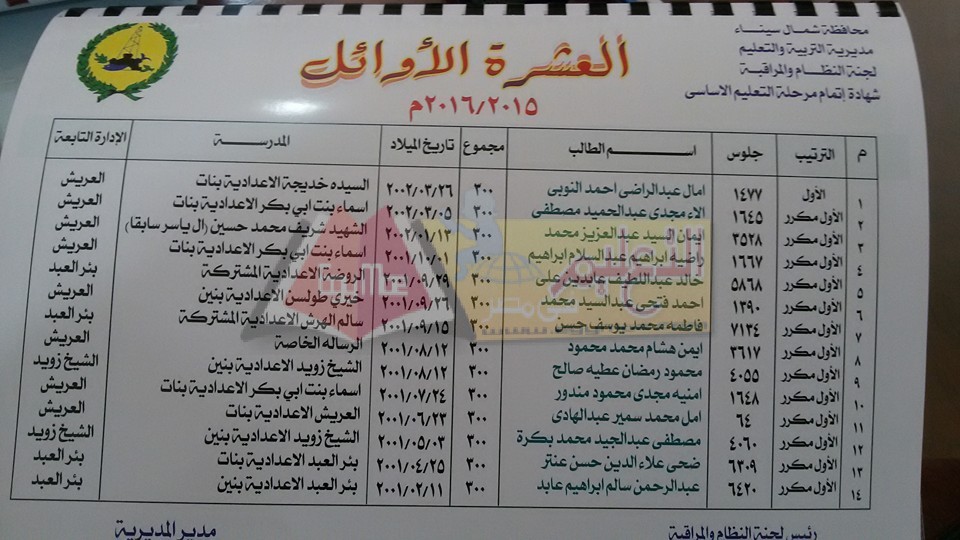 محافظة شمال سيناء
مديرية التربية والتعليم
لجنة النظام والمراقبة
شهادة إتمام مرحلة التعليم الاساسى
العشرة الأوائل
٢٠١٦/٢٠١٥م
م الترتيب جلوس اسم الطالب مجموع تاريخ الميلاد المدرسة الإدارة التابعة
١ الأول ١٤٧٧ امال عبدالراضى احمد النوبى ٣٠٠ ٢٠٠٢/٠٣/٢٦ السيده خديجة الاعدادية بنات العريش
٢ الأول مكرر ١٦٤٥ الاء مجدى عبدالحميد مصطفى ٣٠٠ ٢٠٠٢/٠٣/٠٥ اسماء بنت ابي بكر الاعدادية بنات العريش
٣ الأول مكرر ٣٥٢٨ ايمان السيد عبدالعزيز محمد ٣٠٠ ٢٠٠٢/٠١/١٣ الشهيد شريف محمد حسين (ال ياسر سابقا) العريش
٤ الأول مكرر ١٦٦٧ راضية ابراهيم عبدالسلام ابراهيم ٣٠٠ ٢٠٠١/١٠/٠١ اسماء بنت ابي بكر الاعدادية بنات العريش
٥ الأول مكرر ٥٨٦٨ خالد عبداللطيف عابدين على ٣٠٠ ٢٠٠١/٠٩/٢٩ الروضة الاعدادية المشتركة بئر العبد
٦ الأول مكرر ١٣٩٠ احمد فتحى عبدالسيد محمد ٣٠٠ ٢٠٠١/٠٩/٢٦ خيري طولسن الاعدادية بنين العريش
٧ الأول مكرر ٧١٣٤ فاطمه محمد يوسف حسن ٣٠٠ ٢٠٠١/٠٩/١٥ سالم الهرش الاعدادية المشتركة بئر العبد
٨ الأول مكرر ٣٦١٧ ايمن هشام محمد محمود ٣٠٠ ٢٠٠١/٠٨/١٢ الرساله الخاصة العريش
٩ الأول مكرر ٤٠٥٥ محمود رمضان عطيه صالح ٣٠٠ ٢٠٠١/٠٨/١٢ الشيخ زويد الاعدادية بنين الشيخ زويد
١٠ الأول مكرر ١٦٤٨ امنيه مجدى محمود مندور ٣٠٠ ٢٠٠١/٠٧/٢٤ اسماء بنت ابي بكر الاعدادية بنات العريش
١١ الأول مكرر ٦٤ امل محمد سمير عبدالهادى ٣٠٠ ٢٠٠١/٠٦/٢٣ العريش الاعدادية بنات العريش
١٢ الأول مكرر ٤٠٦٠ مصطفى عبدالجيد محمد بكرة ٣٠٠ ٢٠٠١/٠٥/٠٣ الشيخ زويد الاعدادية بنين الشيخ زويد
١٣ الأول مكرر ٦٣٠٩ ضحى علاء الدين حسن عنتر ٣٠٠ ٢٠٠١/٠٤/٢٥ بئر العبد الاعدادية بنات بئر العبد
١٤ الأول مكرر ٦٤٢٠ عبدالرحمن سالم ابراهيم عابد ٣٠٠ ٢٠٠١/٠٢/١١ بئر العبد الاعدادية بنين بئر العبد
رئيس لجنة النظام والمراقبة مدير المديرية
التعليم
في مصر